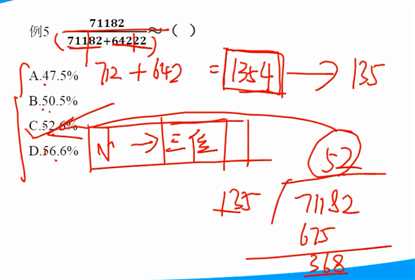 例5 71182/(71182+64222)≈( )
A.47.5% 712 + 642 = 1354 → 135
B.50.5%
C.52.6%
D.56.6% N → 三位
52
135 71182
675
368